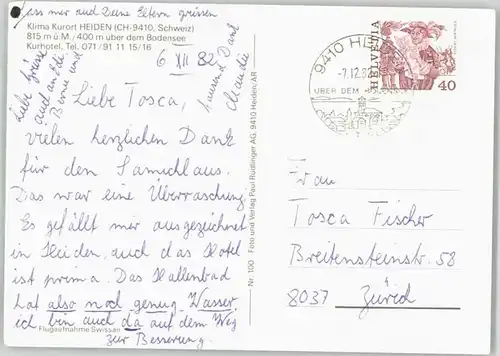 Lass mir auch Deine Eltern grüssen
Klima Kurort HEIDEN (CH-9410, Schweiz)
815 m ü.M / 400 m über dem Bodensee
Kurhotel, Tel. 071/91 11 15/16
6. XII 82
Liebe Grüsse
auch an die
Berne und
tausend Dank
Claudia
Liebe Tosca,
vielen herzlichen Dank
für den Samichlaus.
Das war eine Überraschung
Es gefällt mir ausgezeichnet
in Heiden, auch das Hotel
ist prima. Das Hallenbad
hat also noch genug Wasser,
ich bin auch da auf dem Weg
zur Besserung.
Flugaufnahme Swissair
Nr. 100 Foto und Verlag Paul Rüdlinger AG, 9410 Heiden/AR
9410 HEIDEN
-7.12.82
ÜBER DEM BODENSEE
HELVETIA
40
Frau
Tosca Fischer
Breitensteinstr. 58
8037 Zürich